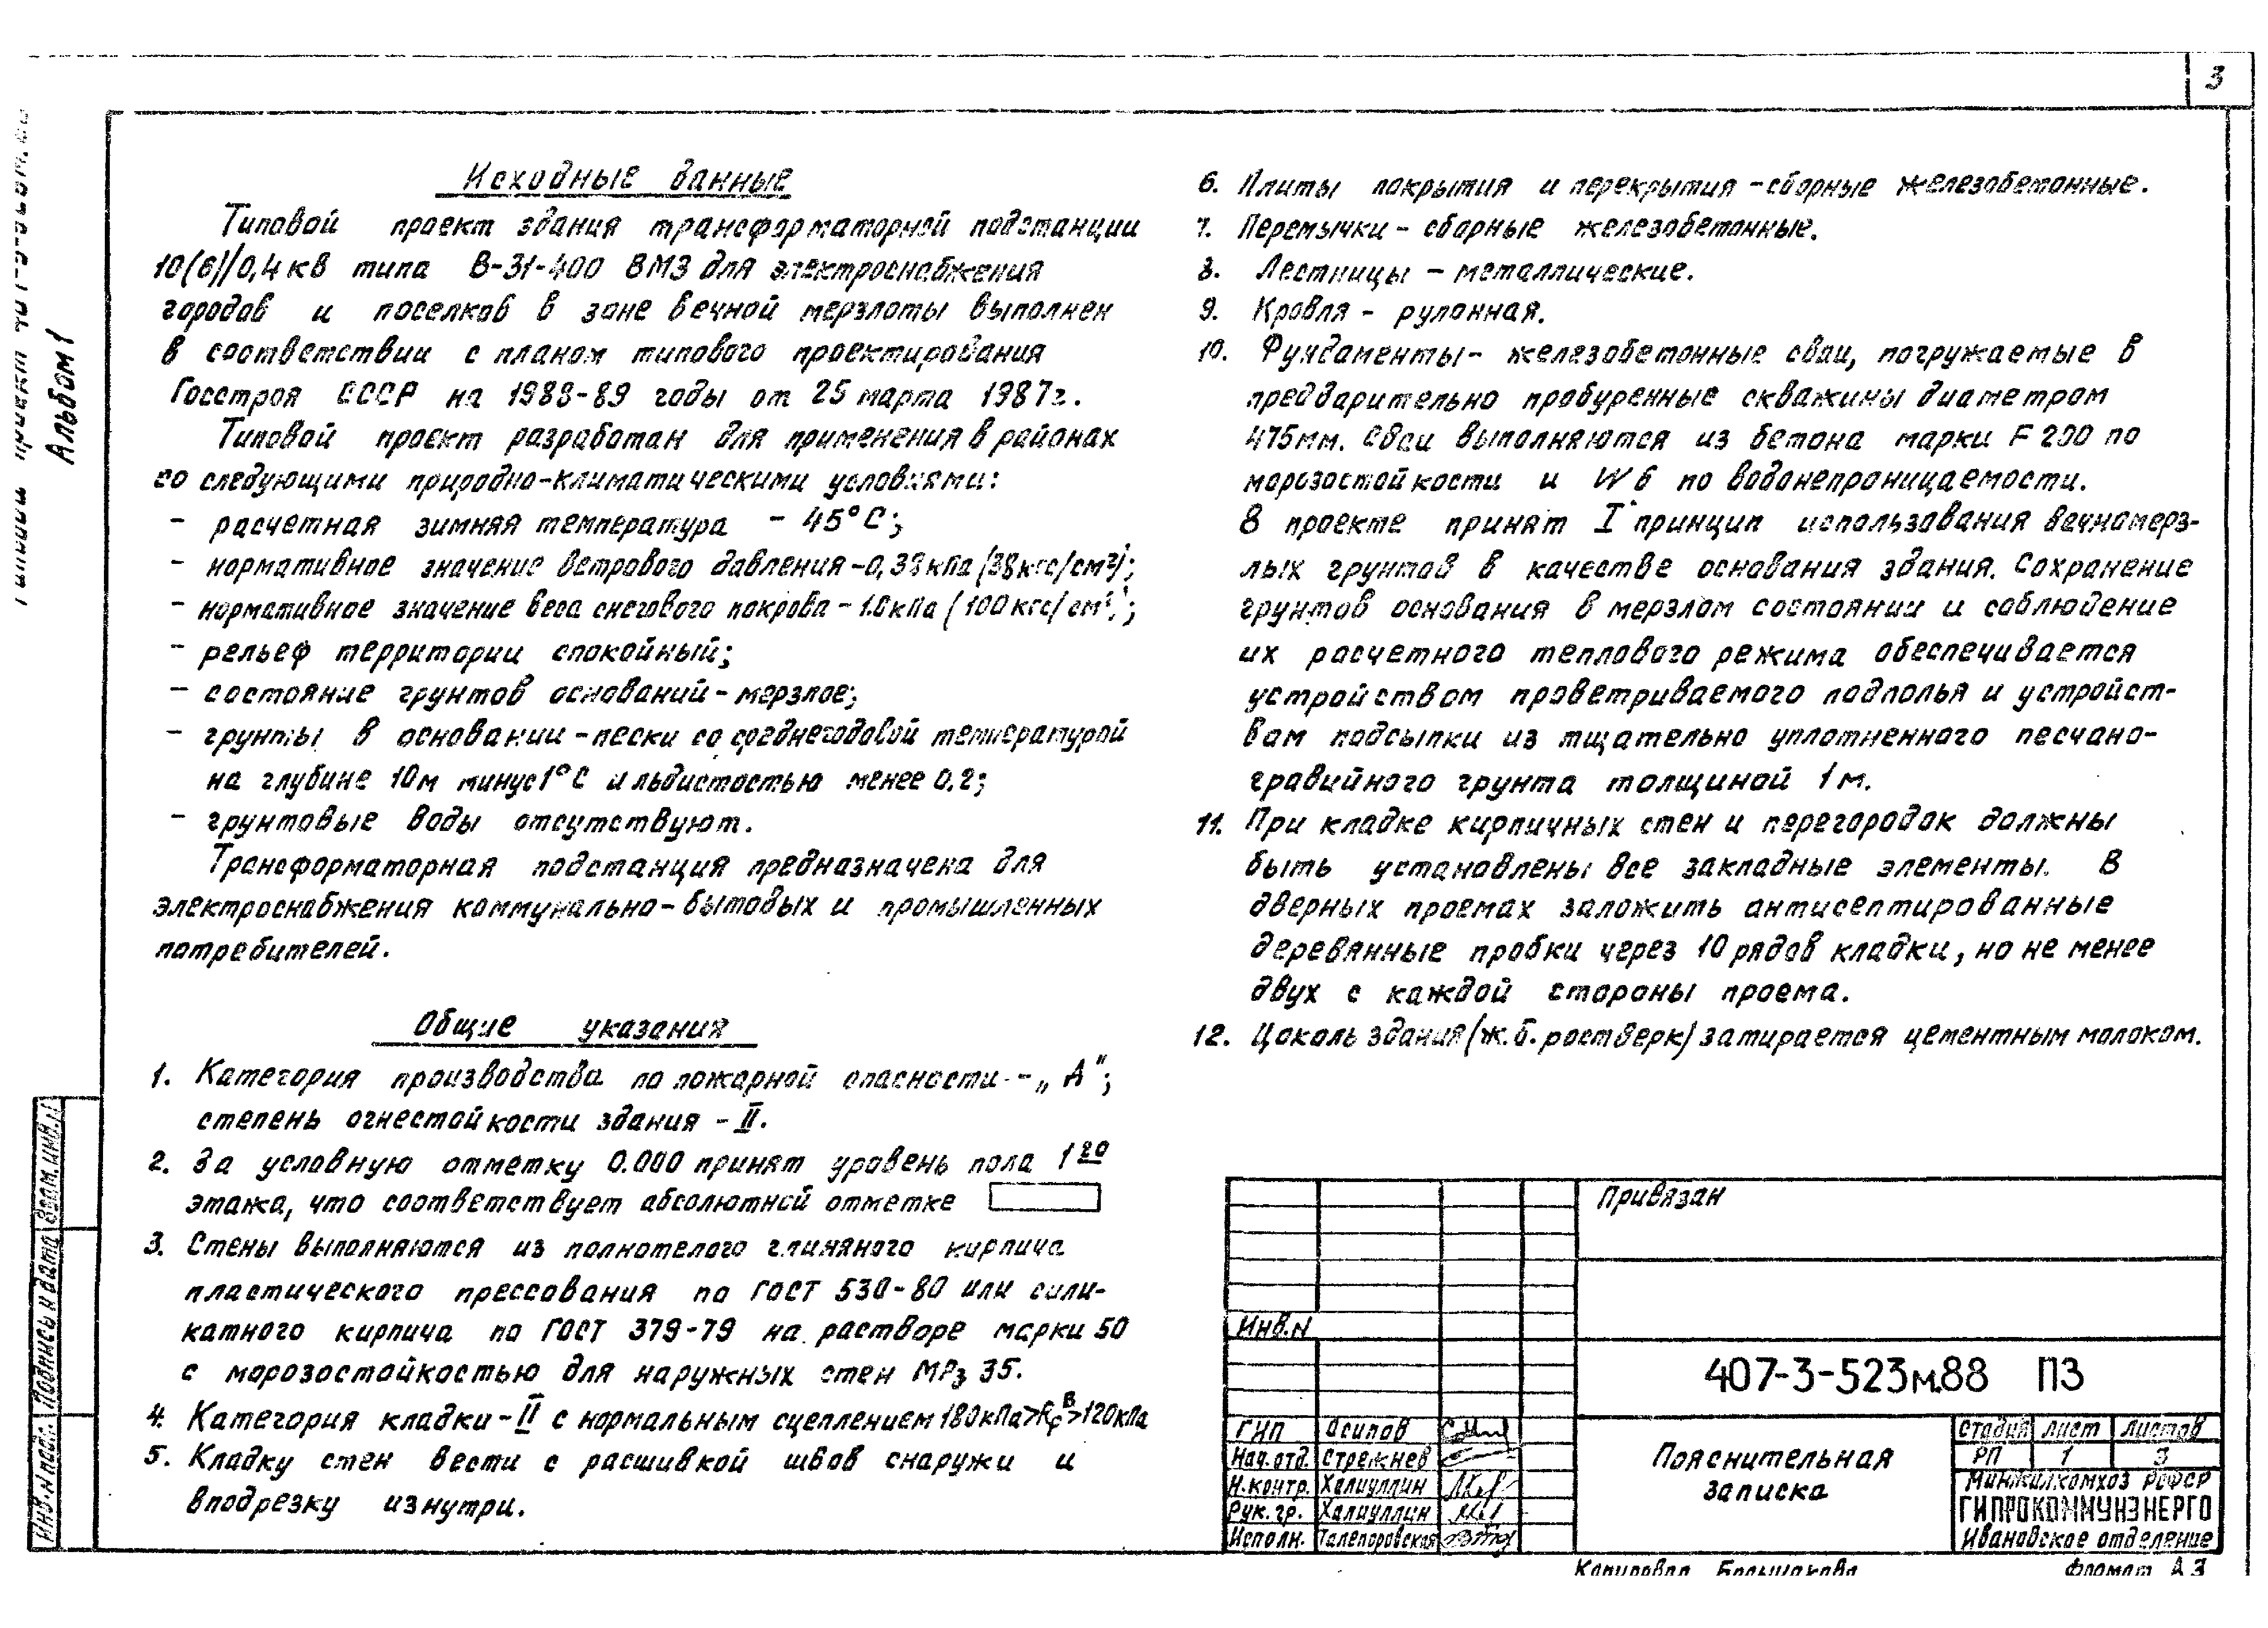 3
Альбом 1
Исходные данные
Типовой проект здания трансформаторной подстанции
10(6)/0,4 кв типа В-31-400 ВМЗ для электроснабжения
городов и поселков в зоне вечной мерзлоты выполнен
в соответствии с планом типового проектирования
Госстроя СССР на 1988-89 годы от 25 марта 1987г.
Типовой проект разработан для применения в районах
со следующими природно-климатическими условиями:
- расчетная зимняя температура - 45°С;
- нормативное значение ветрового давления-0,38кПа (38кгс/см²);
- нормативное значение веса снегового покрова - 1.0кПа (100кгс/см²);
- рельеф территории спокойный;
- состояние грунтов оснований - мерзлое;
- грунты в основании - пески со среднегодовой температурой
на глубине 10м минус 1°С и льдистостью менее 0,2;
- грунтовые воды отсутствуют.
Трансформаторная подстанция предназначена для
электроснабжения коммунально-бытовых и промышленных
потребителей.
Общие указания
1. Категория производства по пожарной опасности - „А";
степень огнестойкости здания - II.
2. За условную отметку 0.000 принят уровень пола 1го
этажа, что соответствует абсолютной отметке
3. Стены выполняются из полнотелого глиняного кирпича
пластического прессования по ГОСТ 530-80 или сили-
катного кирпича по ГОСТ 379-79 на растворе марки 50
с морозостойкостью для наружных стен МРз 35.
4. Категория кладки - II с нормальным сцеплением 180кПа>Rсᴮ>120кПа
5. Кладку стен вести с расшивкой швов снаружи и
вподрезку изнутри.
6. Плиты покрытия и перекрытия - сборные железобетонные.
7. Перемычки - сборные железобетонные.
8. Лестницы - металлические.
9. Кровля - рулонная.
10. Фундаменты - железобетонные сваи, погружаемые в
предварительно пробуренные скважины диаметром
475мм. Сваи выполняются из бетона марки F 200 по
морозостойкости и W 6 по водонепроницаемости.
В проекте принят I принцип использования вечномерз-
лых грунтов в качестве основания здания. Сохранение
грунтов основания в мерзлом состоянии и соблюдение
их расчетного теплового режима обеспечивается
устройством проветриваемого подполья и устройст-
вом подсыпки из тщательно уплотненного песчано-
гравийного грунта толщиной 1м.
11. При кладке кирпичных стен и перегородок должны
быть установлены все закладные элементы. В
дверных проемах заложить антисептированные
деревянные пробки через 10 рядов кладки, но не менее
двух с каждой стороны проема.
12. Цоколь здания (ж.б. ростверк) затирается цементным молоком.
Привязан
Инв.N
407-3-523м.88 ПЗ
ГИП Осипов
Нач.отд. Стрежнев
Н.контр. Халиуллин
Рук.гр. Халиуллин
Исполн. Талепоровская
Пояснительная
записка
Стадия Лист Листов
РП 1 3
Минжилкомхоз РСФСР
ГИПРОКОММУНЭНЕРГО
Ивановское отделение
Копировал Большакова
Формат А3
Инв.N подл. Подпись и дата Взам.инв.N